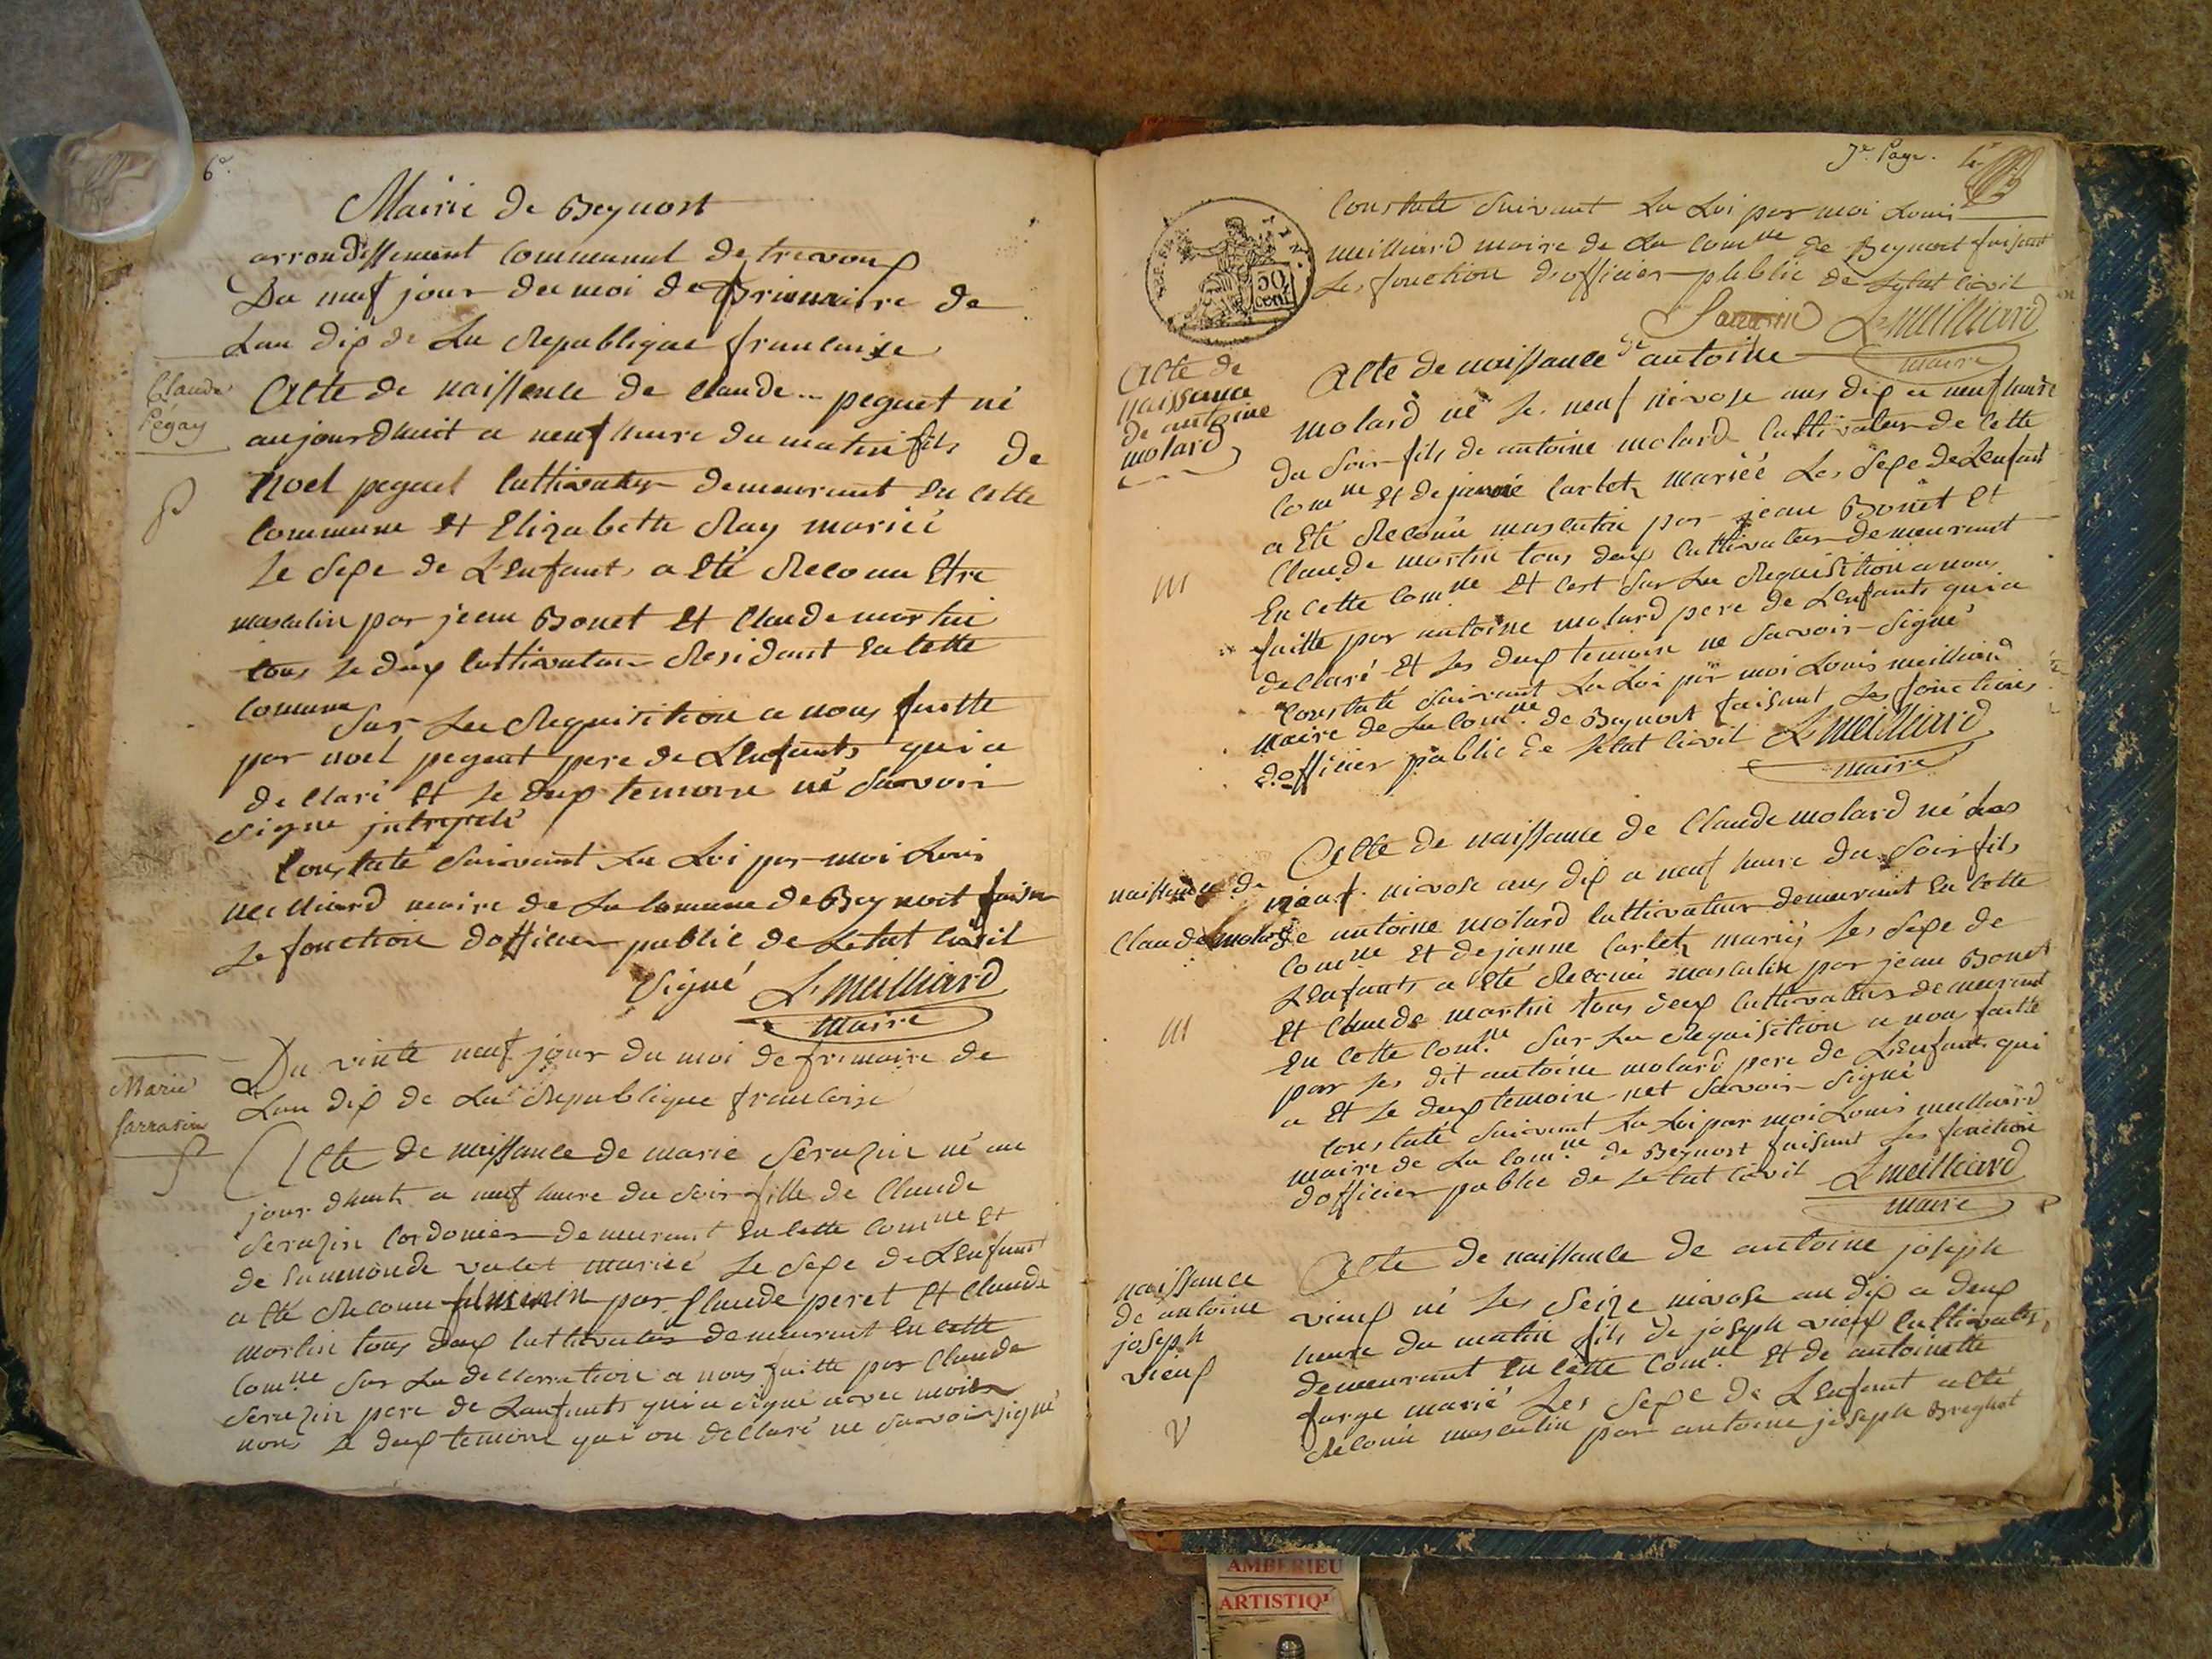 6e
Mairie de Beynost
arrondissement Communal de trevoux
Du neuf jour du moi de frimaire de
Lan dix de La Republique francaise
Claude
Pégay
Acte de naissence de claude ... peguet né
aujourdhuit a neuf heure du matin fils de
Noel peguet Cultivateur demeurant En cette
Commune Et Elizabette Ray mariéé
Le Sexe de L'Enfants a Eté Reconu Etre
masculin par jean Bonet Et Claude martin
tous Le deux Cultivateur Residant En Cette
Comune
Sur La Requisition a nous faitte
par noel peguet pere de L'Enfants qui a
declaré Et Le deux temoins né Savoir
Signe
Constaté Suivant La Loi par moi Louis
meilliard maire de La Comune de Beynost
Le fonction dofficier public de Letat Civil
Signé L. meilliard
maire
Marie
Sarrasin
Du vinte neuf jour du moi de frimaire de
Lan dix de La Republique francaise
Acte de naissance de marie Serazin né au
jour dhuit a neuf heure du Soir fille de Claude
Serazin Cordonier demeurant En Cette Comne Et
de valet mariéé Le Sexe de LEnfant
a Eté Reconu feminin par Claude peret Et Claude
martin tous deux Cultivateur demeurant En Cette
Comne Sur La declarration a nous faitte par Claude
Serazin pere de Lanfants qui a Signe avec
nous Le deux temoins qui on declaré ne Savoir signé
7e Page.
Constaté Suivant La Loi par moi Louis
meilliard maire de La Comne de Beynost faisant
Les fonction dofficier public de Letat Civil
Sarrasin L. meilliard
maire
50
cent
Acte de
naissance
de antoine
molard
Acte de naissance de antoine
molard né Le neuf nivose ans dix a neuf heure
du Soir fils de antoine molard Cultivateur de Cette
Comne Et de janne Carlet mariéé Les Sexe de Lenfant
a Eté Reconu masculin par jean Bonet Et
Claude martin tous deux Cultivateur demeurant
En Cette Comne Et Cest Sur La Requisition a nous
faitte par antoine molard pere de Lenfants qui a
declaré Et Les deux temoin ne Savoir Signé
Constaté Suivant La Loi par moi Louis meilliard
maire de La Comne de Beynost faisant Les fonctions
dofficier public de Letat Civil L. meilliard
maire
naissance de
Claude molard
Acte de naissance de Claude molard né Les
neuf nivose ans dix a neuf heure du Soir fils
de antoine molard Cultivateur demeurant En Cette
Comne Et de janne Carlet mariéé Les Sexe de
LEnfants a Eté Reconu masculin par jean Bonet
Et Claude martin tous deux Cultivateur demeurant
En Cette Comne Sur La Requisition a nous faitte
par Les dit antoine molard pere de LEnfant qui
a Et Le deux temoin net Savoir Signé
Constaté Suivant La Loi par moi Louis meilliard
maire de La Comne de Beynost faisant Les fonction
dofficier public de Letat Civil L. meilliard
maire
naissance
de antoine
joseph
vieux
Acte de naissance de antoine joseph
vieux né Les Seize nivose an dix a deux
heure du matin fils de joseph vieux Cultivateur
demeurant En Cette Comne Et de antoinette
farge marié Les Sexe de Lenfant a Eté
Reconu masculin par antoine joseph Breghot
AMBERIEU
ARTISTIQ'